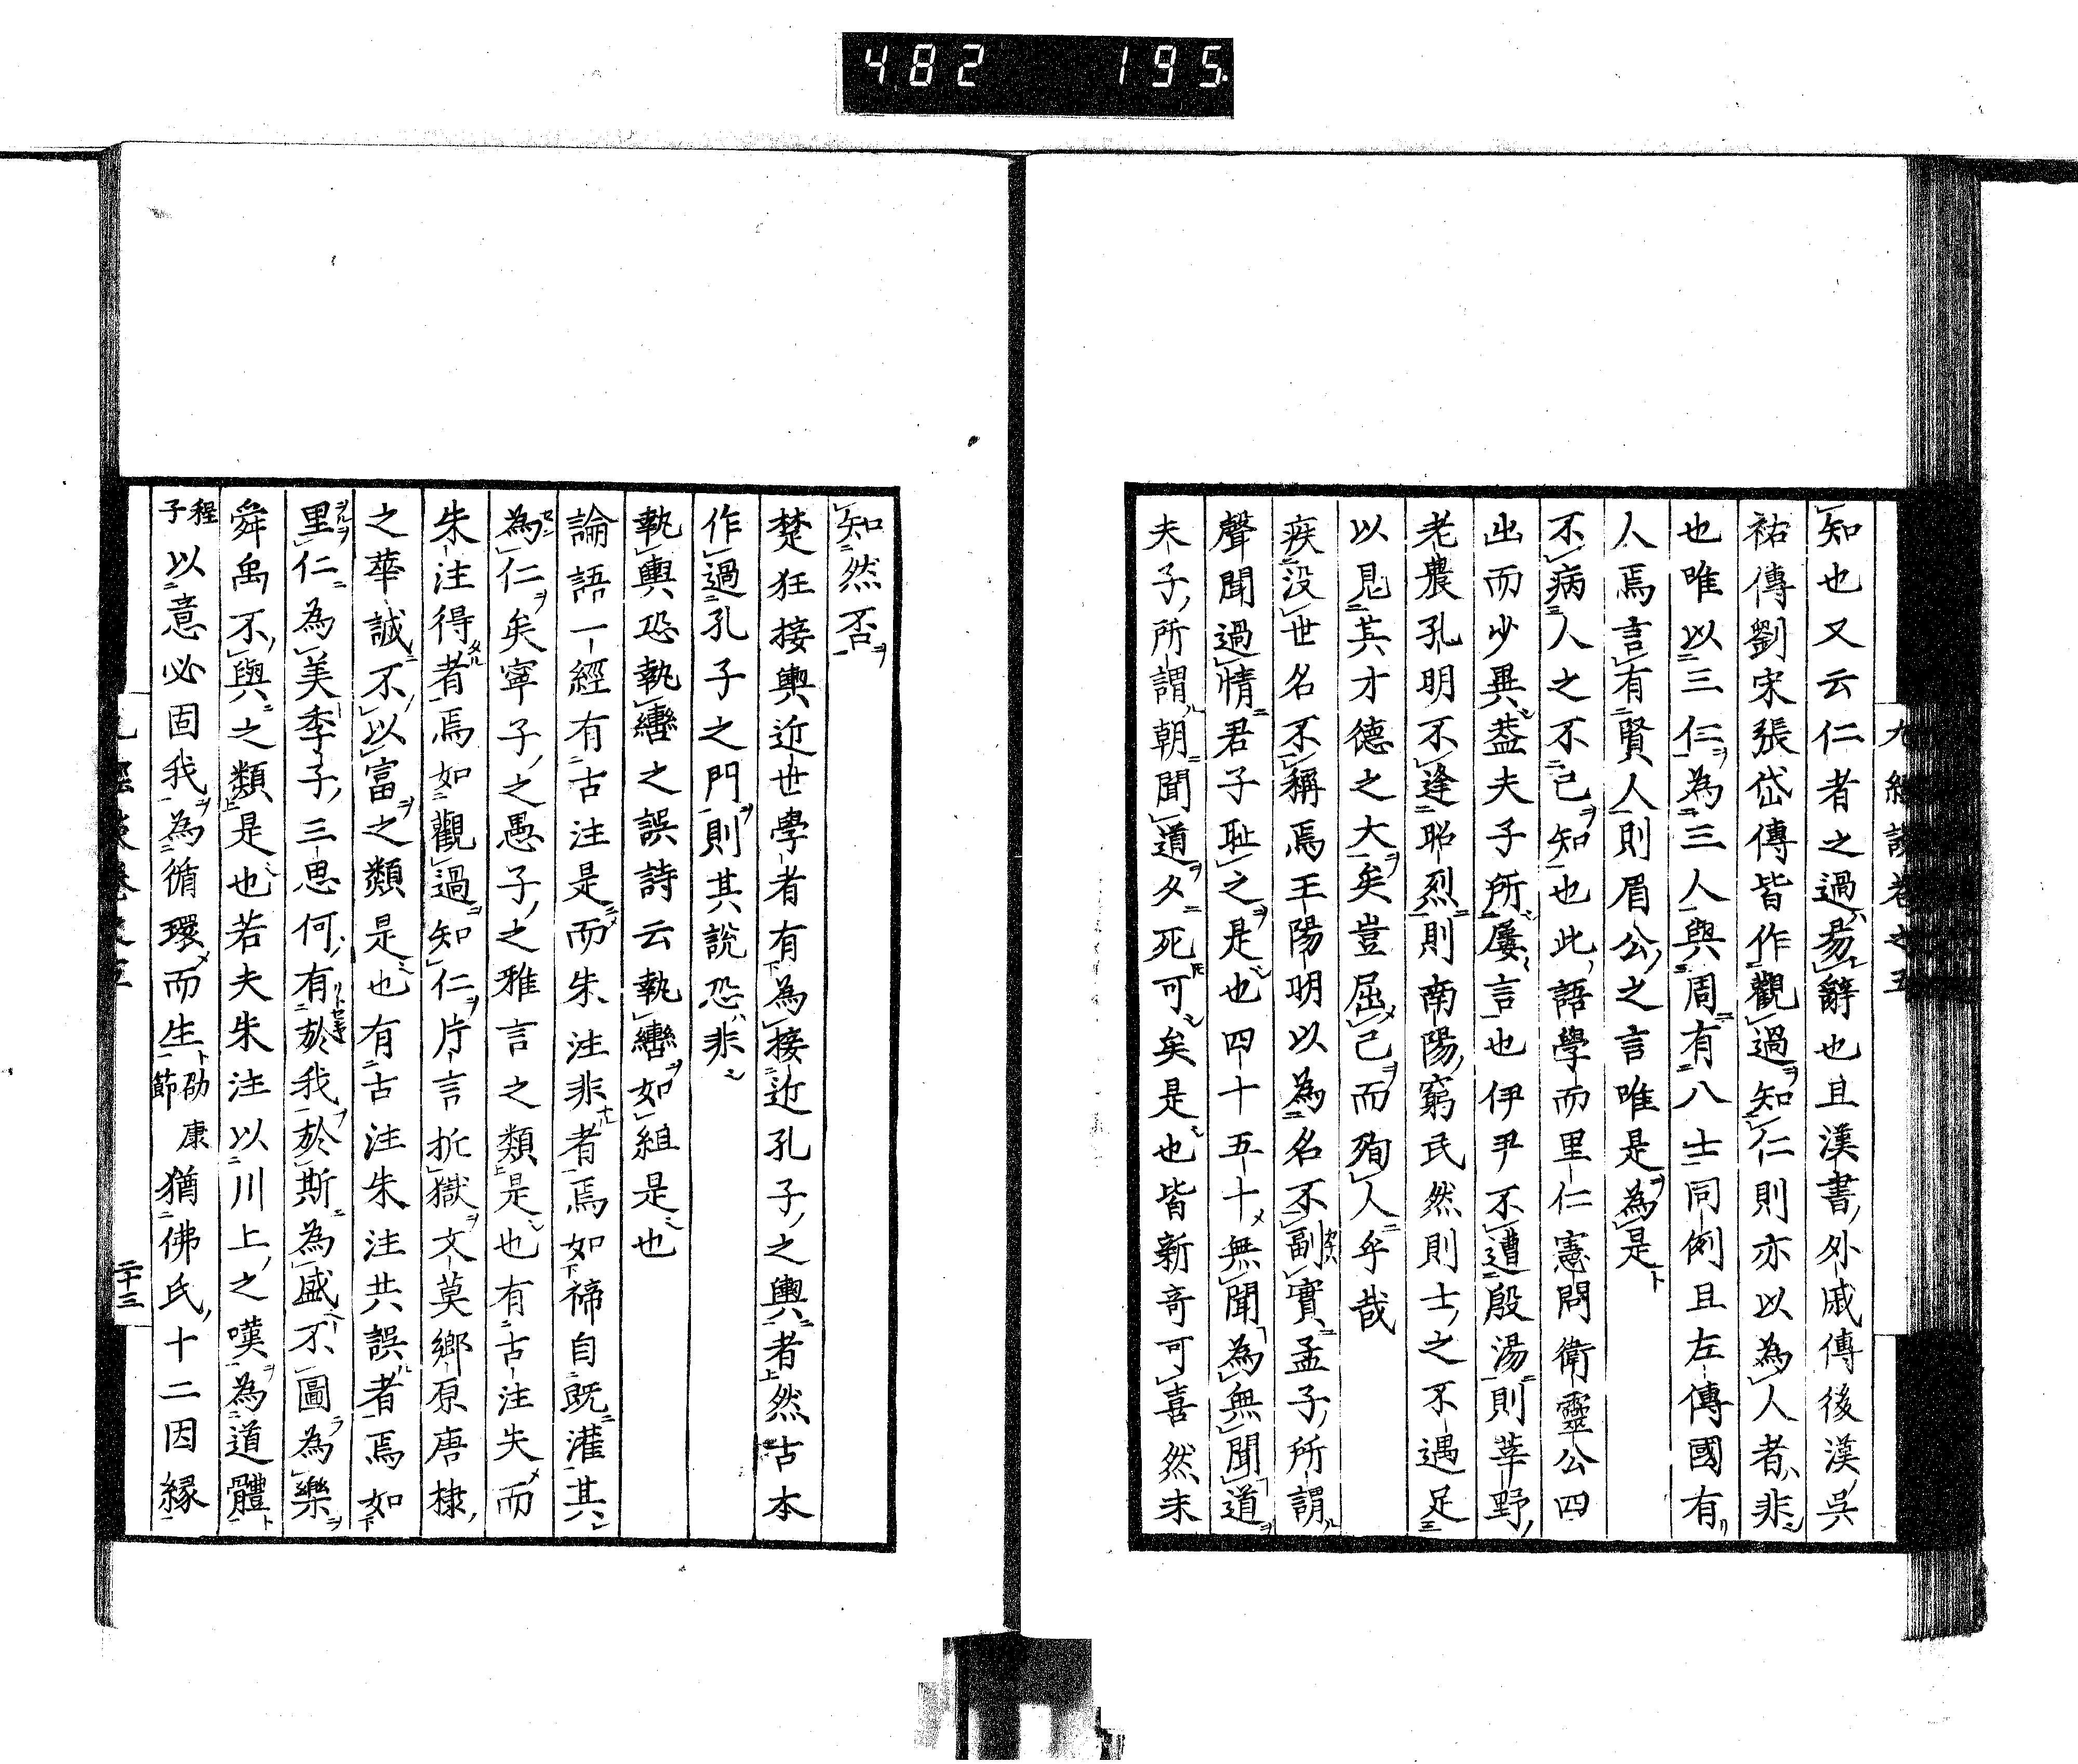 482 195
九經談卷之五
知也又云仁者之過易辭也且漢書外戚傳後漢吳
祐傳劉宋張岱傳皆作觀過知仁則亦以為人者非
也唯以三仁為三人與周有八士同例且左傳國有
人焉言有賢人則眉公之言唯是為是
不病人之不己知也此語學而里仁憲問衛靈公四
出而少異蓋夫子所屢言也伊尹不遭殷湯則莘野
老農孔明不逢昭烈則南陽窮民然則士之不遇足
以見其才德之大矣豈屈己而殉人乎哉
疾沒世名不稱焉王陽明以為名不副實孟子所謂
聲聞過情君子耻之是也四十五十無聞為無聞道
夫子所謂朝聞道夕死可矣是也皆新奇可喜然未
知然否
楚狂接輿近世學者有為接近孔子之輿者然古本
作過孔子之門則其說恐非
執輿恐執轡之誤詩云執轡如組是也
論語一經有古注是而朱注非者焉如禘自既灌其
為仁矣寧子之愚子之雅言之類是也有古注失而
朱注得者焉如觀過知仁片言折獄文莫鄉原唐棣
之華誠不以富之類是也有古注朱注共誤者焉如
里仁為美季子三思何有於我於斯為盛不圖為樂
舜禹不與之類是也若夫朱注以川上之嘆為道體
程子以意必固我為循環而生卲康節猶佛氏十二因緣
二十三